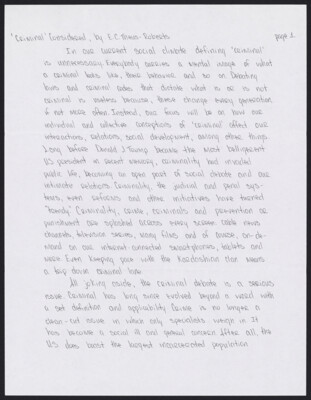 "Criminal" Considered, by E.C. Theus-Roberts page 1.
In our current social climate defining "criminal"
is unnecessary. Everybody carries a mental image of what
a criminal looks like, their behavior and so on. Debating
laws and criminal codes that dictate what is or is not
criminal is useless because, these change every generation
if not more often. Instead, our focus will be on how our
individual and collective conceptions of "criminal" affect our
interactions, relations, social development, among other things.
Long before Donald J. Trump became the most belligerent
US president in recent memory, criminality had invaded
public life, becoming an open part of social debate and our
intimate relations. Criminality, the judicial and penal sys-
tems, even reforms and other initiatives have turned
"trendy". Criminality, crime, criminals and prevention or
punishment are splashed across every screen. Cable news
channels, television series, many films and of course, on-de-
mand on our internet-connected smartphones, tablets and
such. Even Keeping pace with the Kardashian clan means
a trip down criminal lane.
All joking aside, the criminal debate is a serious
one. Criminal has long since evolved beyond a word with
a set definition and applicability. Crime is no longer a
clean-cut issue in which only specialists weigh in. It
has become a social ill and general concern. After all, the
U.S. does boast the largest incarcerated population